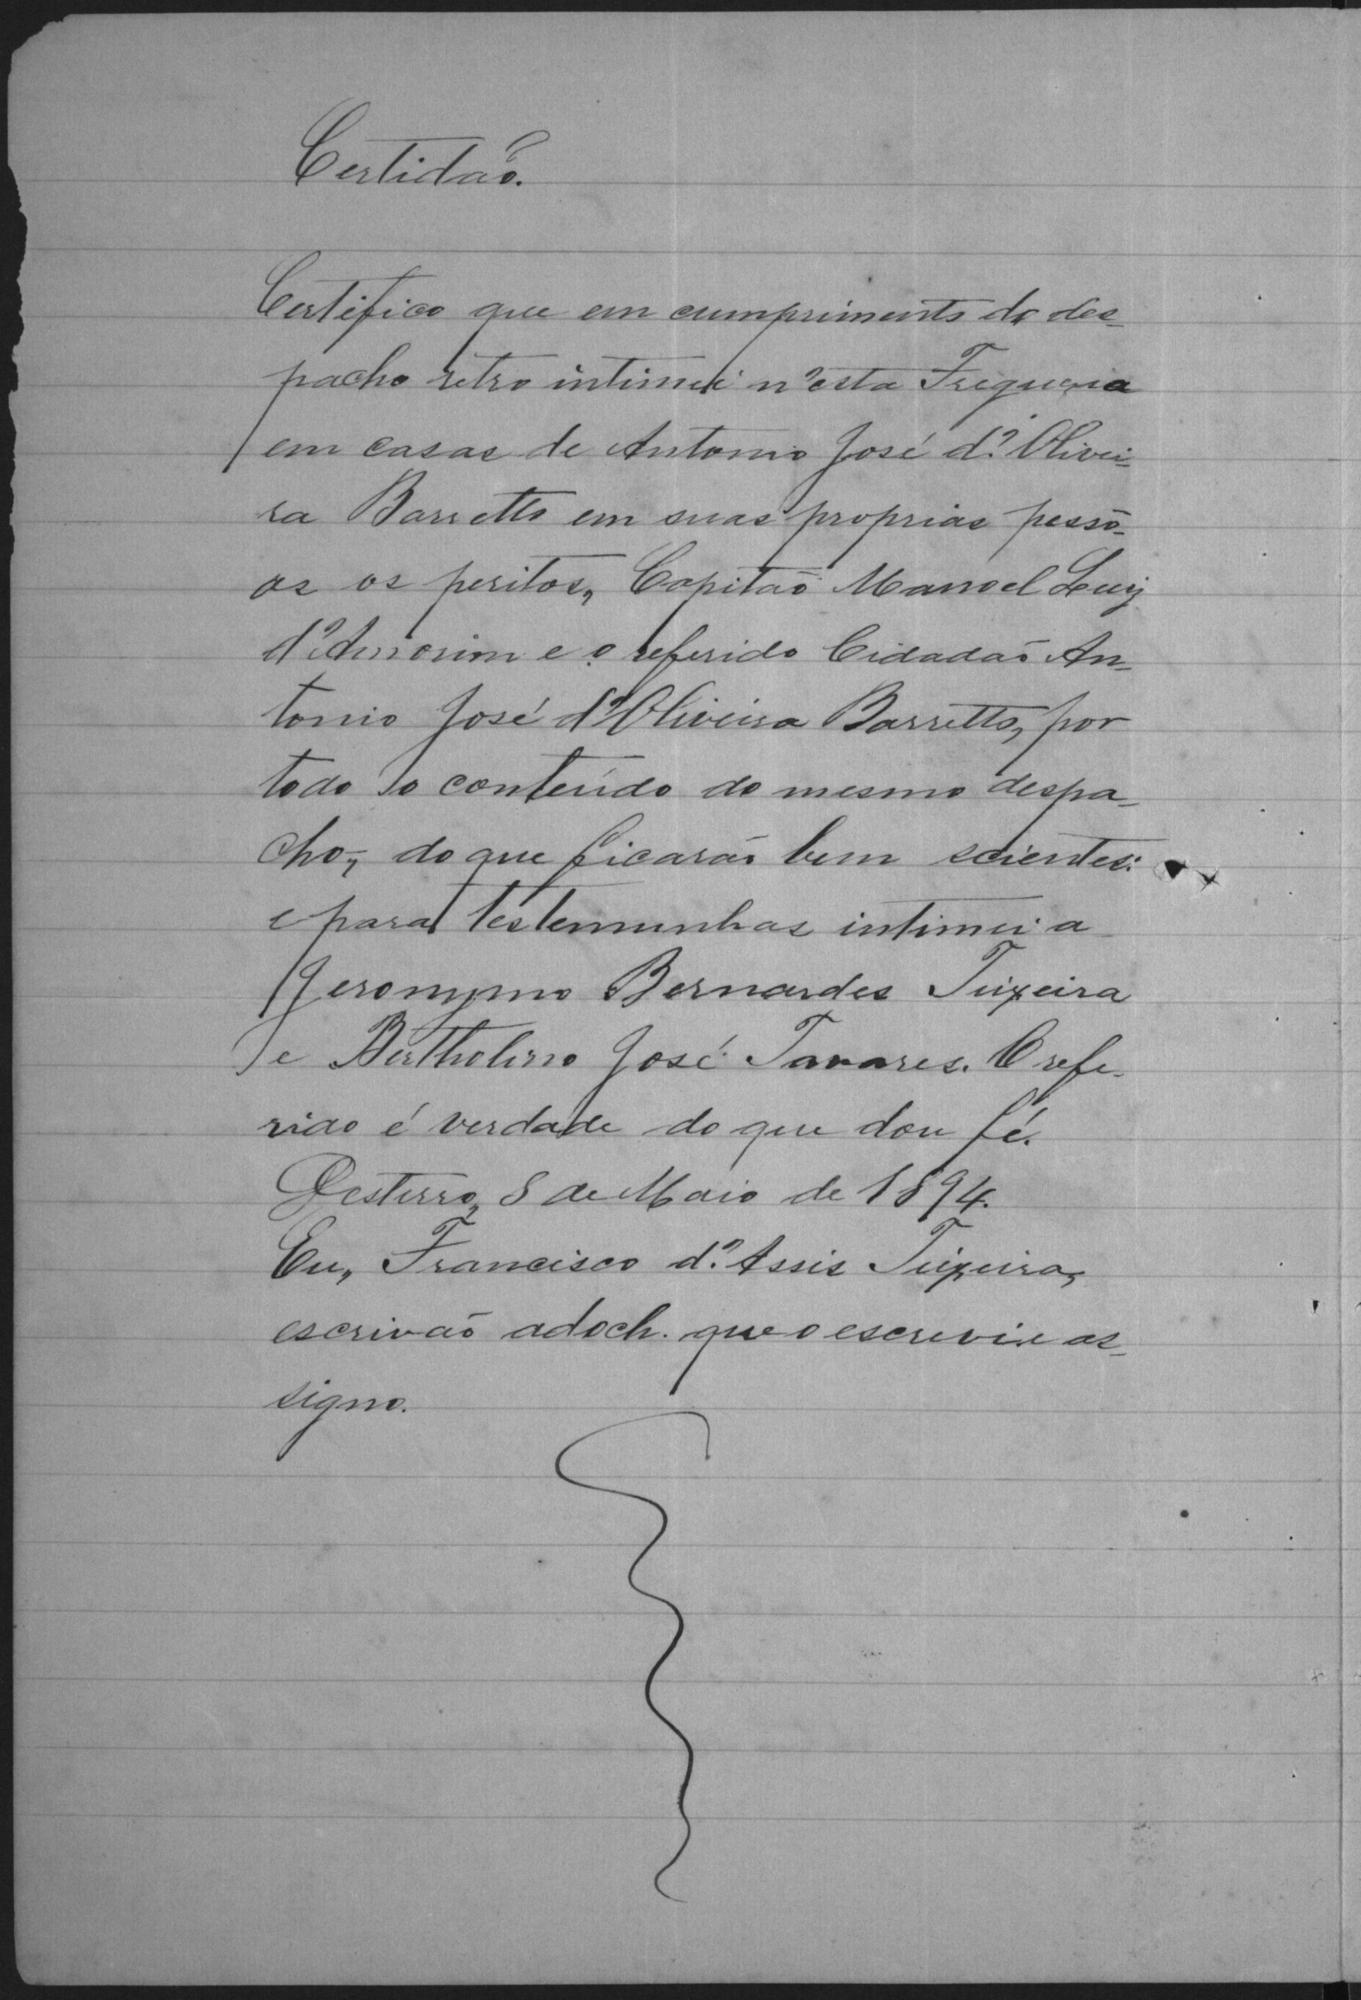 Certidão.
Certifico que em cumprimento do des-
pacho retro intimei n'esta Freguesia
em casas de Antonio José d'Olivei-
ra Barretto em suas proprias pessô-
as os peritos, Capitão Manoel Luiz
d'Amorim e o referido Cidadão An-
tonio José d'Oliveira Barretto, por
todo o conteúdo do mesmo despa-
cho, do que ficarão bem scientes:
e para testemunhas intimei a
Jeronymo Bernardes Teixeira
e Bertholino José Tavares. O refe-
rido é verdade do que dou fé.
Desterro, 8 de Maio de 1894.
Eu, Francisco d'Assis Teixeira,
escrivão adoch. que o escrevi e as-
signo.